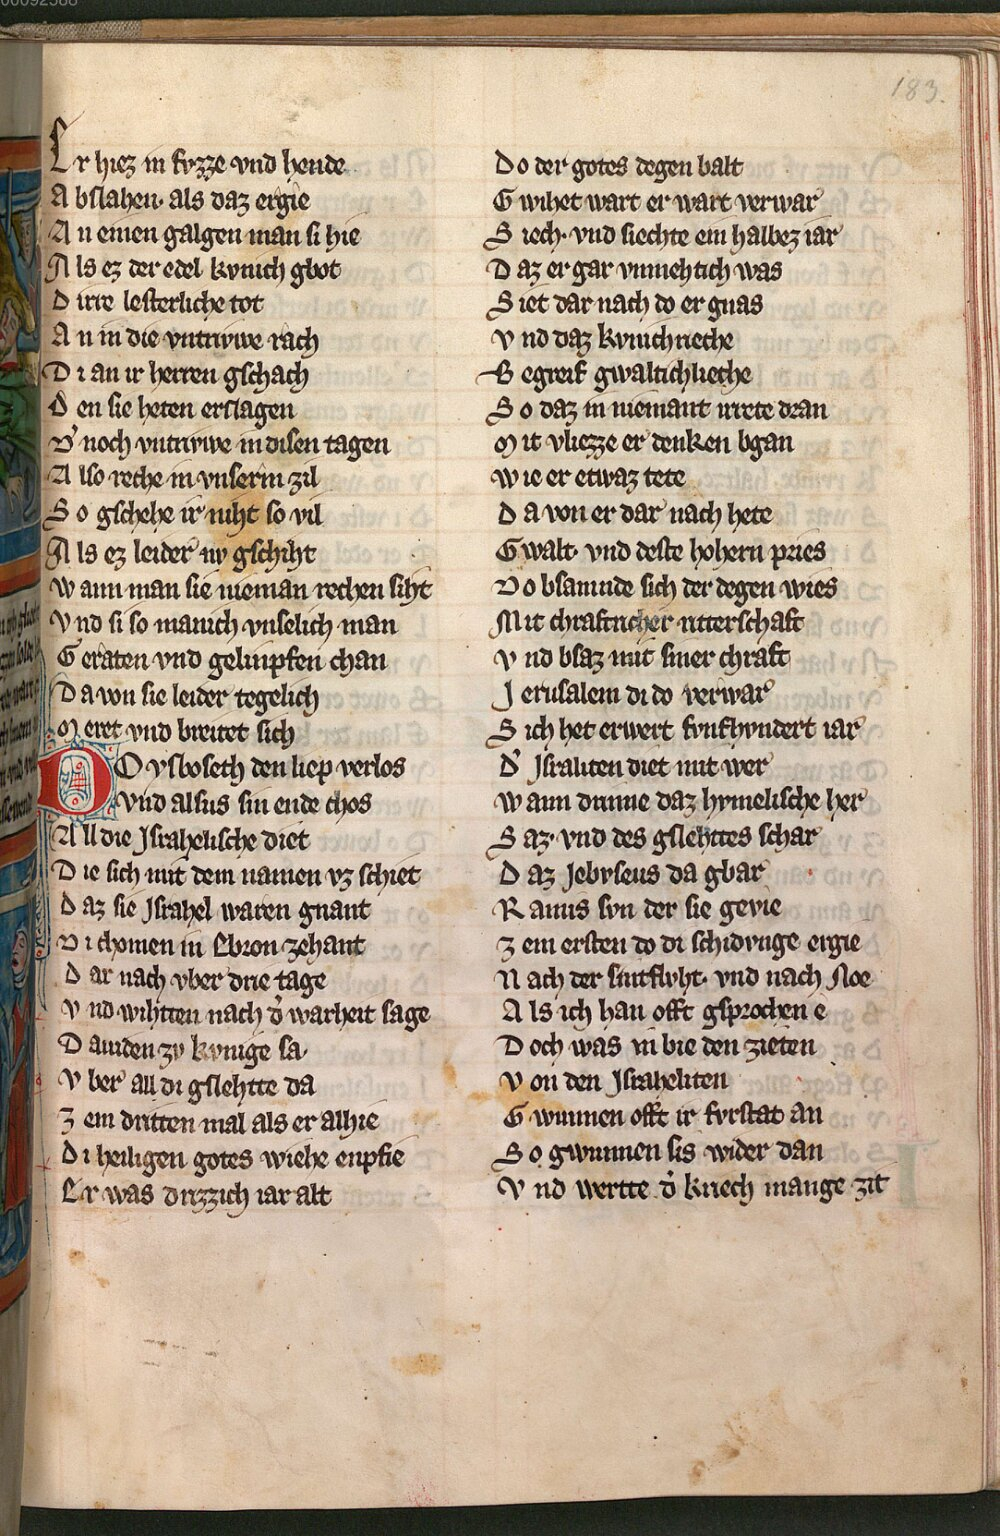 183.
Er hiez in fvzze vnd hende
Abslahen· als daz ergie
An einen galgen man si hie
Als ez der edel kvnich gbot
Dirre lesterliche tot
An in die vntrivwe rach
Di an ir herren gschach
Den sie heten erslagen
V̕ noch vntrivwe in disen tagen
Also reche in vnserm zil
So gschehe ir niht so vil
Als ez leider nv gschiht
Wann man sie nieman rechen siht
Vnd si so manich vnselich man
Geraten vnd gelimpfen chan
Da von sie leider tegelich
Meret vnd breitet sich
DO ysboseth den liep verlos
Vnd alsus sin ende chos
All die Israhelische diet
Die sich mit dem namen vz schiet
Daz sie Israhel waren gnant
Di chomen in Ebron zehant
Dar nach vber drie tage
Vnd wihtten nach d̕ warheit sage
Dauiden zv kvnige sa·
Vber all di gslehtte da
Zem dritten mal als er alhie
Di heiligen gotes wiehe enpfie
Er was drizzich iar alt
Do der gotes degen balt
Gwihet wart er wart verwar
Siech· vnd siechte ein halbez iar
Daz er gar vnmehtich was
Siet dar nach do er gnas
Vnd daz kvnichrieche
Begreif gwaltichlieche
So daz in niemant irrete dran
Mit vliezze er denken bgan
Wie er etwaz tete
Da von er dar nach hete
Gwalt· vnd deste hohern pries
Do bsamnde sich der degen wies
Mit chrafticher ritterschaft
Vnd bsaz mit siner chraft
Jerusalem di do verwar
Sich het erwert fvnfhvndert iar
D̕ Israliten diet mit wer
Wann drinne daz hymelische her
Saz· vnd des gslehttes schar
Daz Jebvseus da gbar
Kamis svn der sie gevie
Zem ersten do di schidvnge ergie
Nach der sintflvht· vnd nach Noe
Als ich han offt gsprochen e
Doch was in bie den zieten
Von den Israheliten
Gwunnen offt ir fvrstat an
So gwunnen sis wider dan
Vnd wertte d̕ kriech mange zit